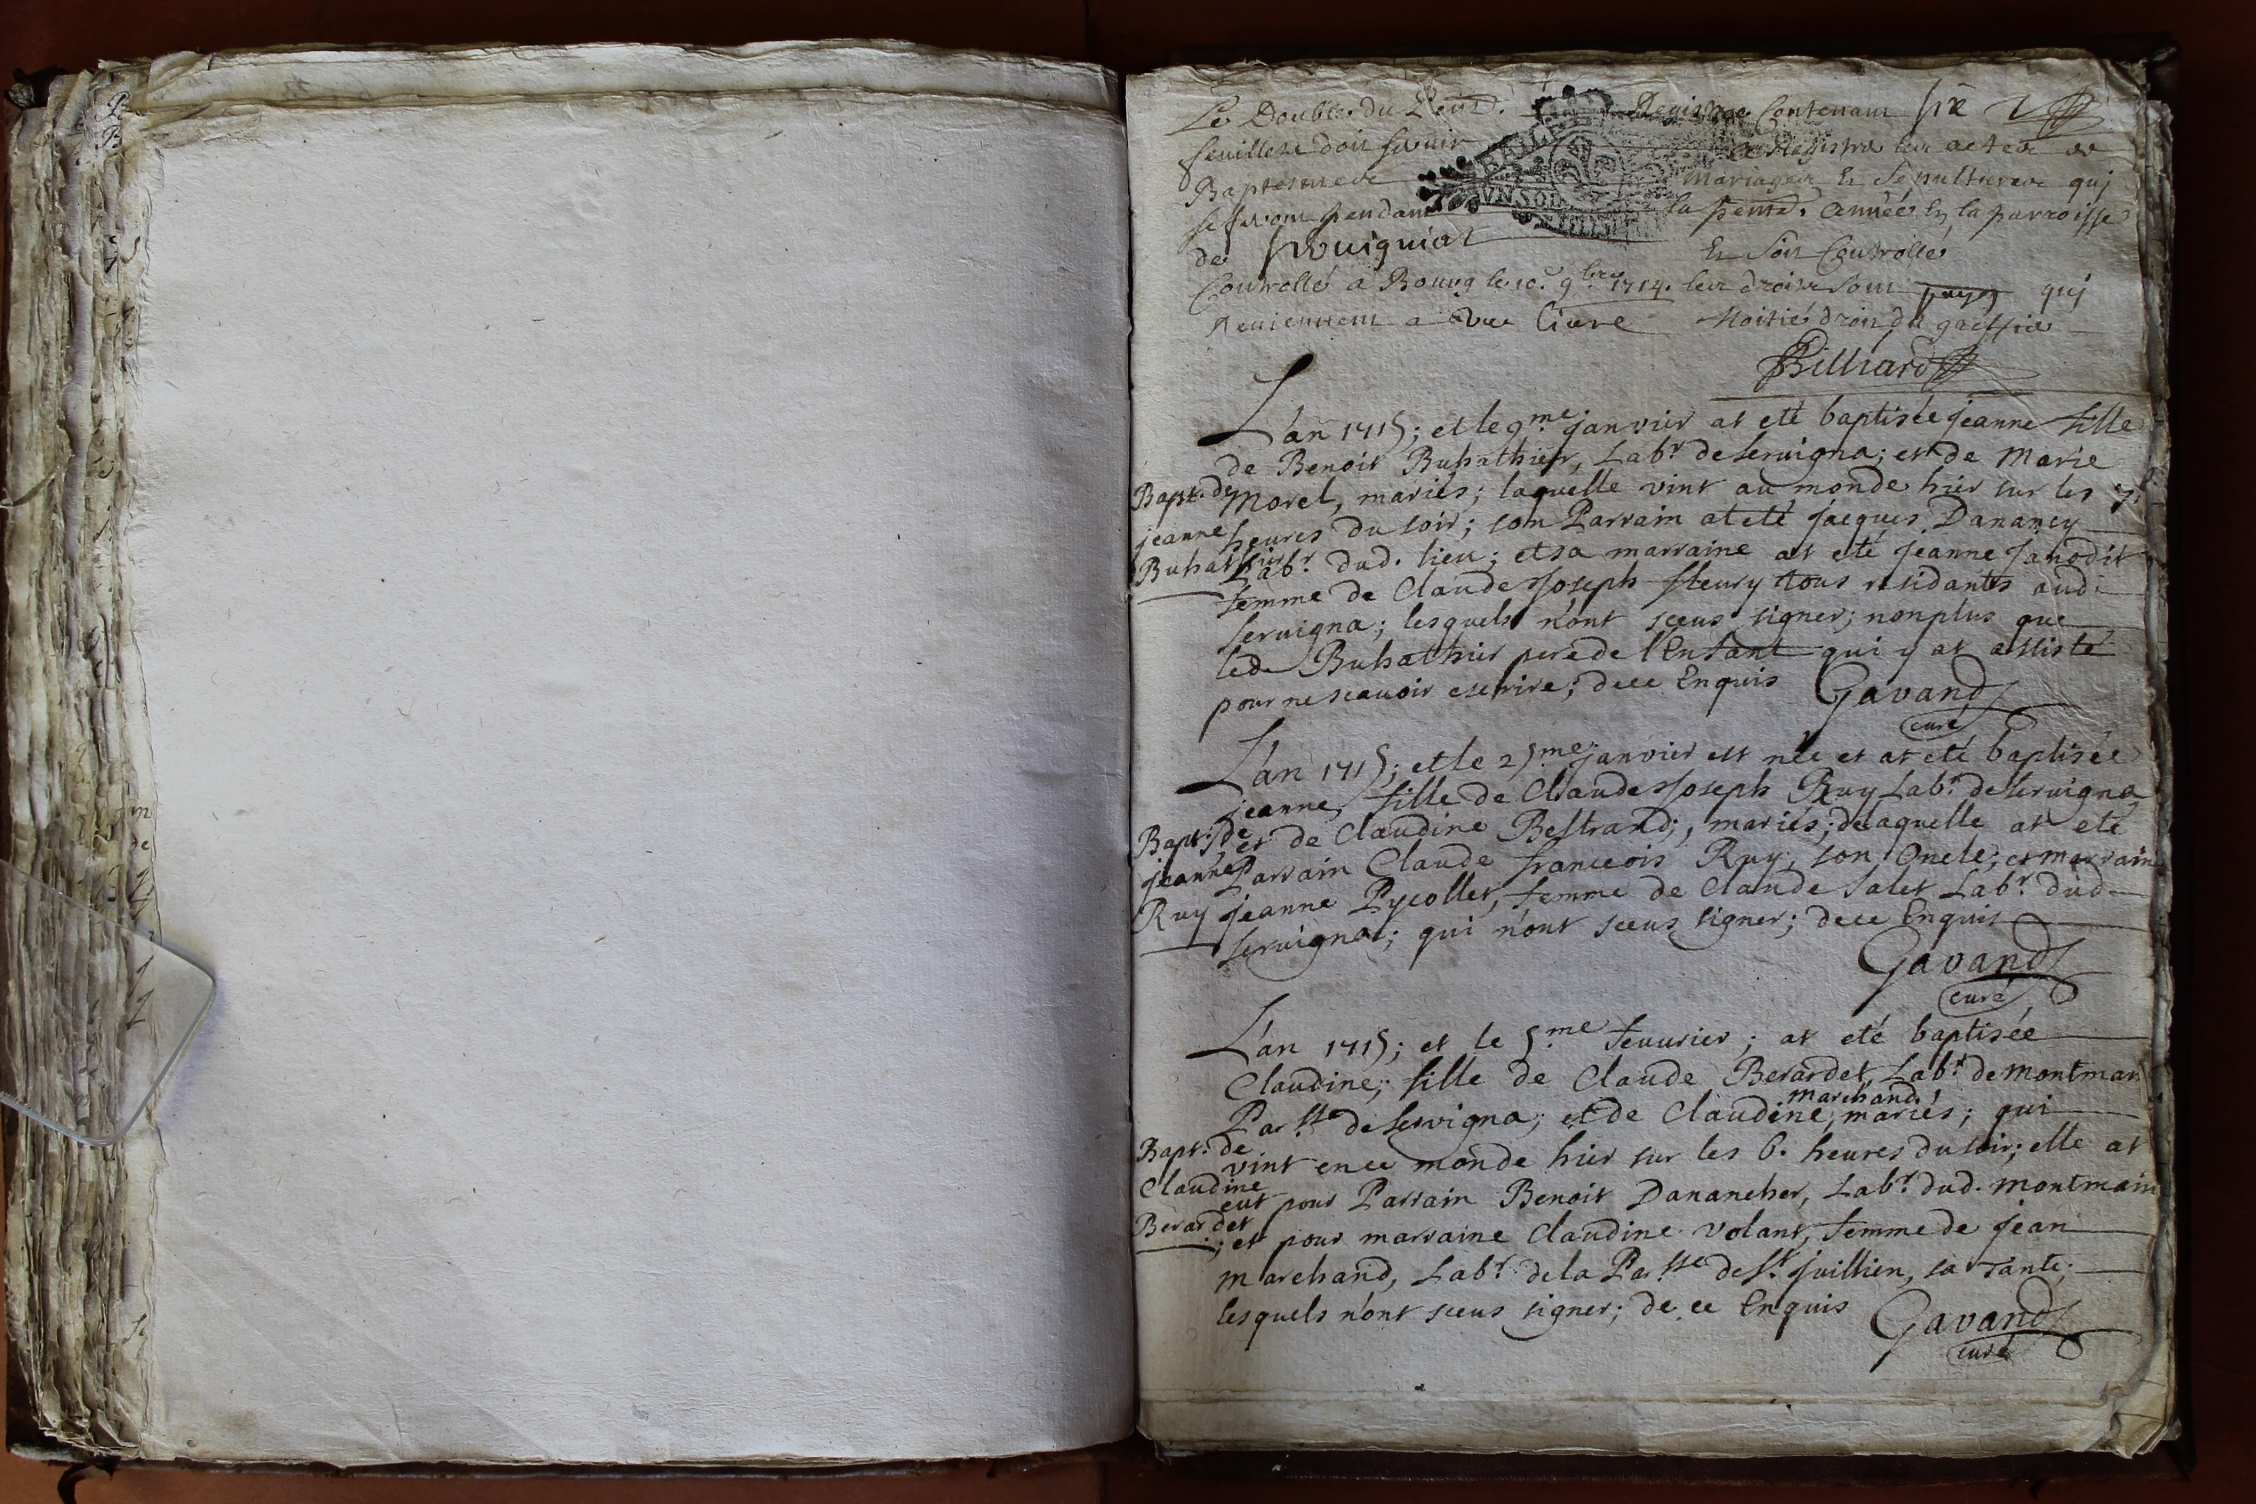 Le Double du Registre Contenant six
feuillets doit servir a Registre les actes de
Baptesmes Mariages Et Sepultures qui
se feront pendant la année En la parroisse
de Servigniat Et Soit Controllé
Controllé a Bourg le 10.e 9bre 1714. les droits sont payés qui
reviennent a une livre Moitié droit du greffie
Billiard
L'an 1715; et le 9.me janvier at eté baptisée jeanne fille
de Benoit Buhathier, Labr. de servigna; et de Marie
Bapt. de Morel, mariés; laquelle vint au monde hier sur les 7.
jeanne heures du soir; son Parrain at eté jacques Danancy
Buhathier Labr. dud. lieu; et sa marraine at eté jeanne janodit
femme de Claude Joseph fleury tous residants aud.
servigna; lesquels n'ont sceus signer; non plus que
led. Buhathier pere de l'Enfant qui y at assisté
pour ne scavoir escrire; de ce Enquis Gavand
curé
L'an 1715; et le 25.me janvier est née et at eté baptisée
jeanne, fille de Claude Joseph Ruy Labr. de servigna,
Bapt. de et de Claudine Bestrand, mariés; de laquelle at eté
jeanne Parrain Claude franceois Ruy, son Oncle; et marraine
Ruy jeanne Pycollet, femme de Claude Salet Labr. dud.
servigna; qui n'ont sceus signer; de ce Enquis
Gavand
curé
L'an 1715; et le 5.me feuvrier; at eté baptisée
Claudine; fille de Claude Berardet, Labr. de montmain
marchand
Parsse de servigna; et de Claudine, mariés; qui
Bapt. de vint en ce monde hier sur les 6. heures du soir; elle at
Claudine eut pour Parrain Benoit Danancher, Labr. dud. montmain
Berardet; et pour marraine Claudine volant, femme de jean
marchand, Labr. de la Parsse de St. juillien, sa tante;
lesquels n'ont sceus signer; de ce Enquis Gavand
curé